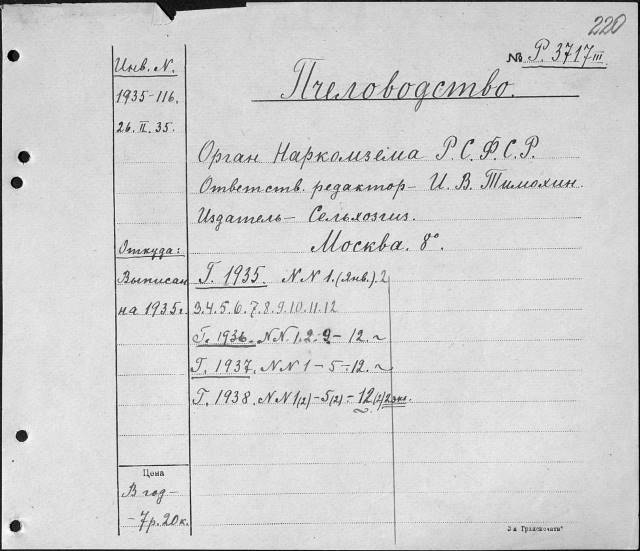 220
№ Р. 3717 III
Инв. N.
1935-116.
26. II. 35.
Пчеловодство.
Орган Наркомзема Р.С.Ф.С.Р.
Ответств. редактор - И. В. Тимохин.
Издатель - Сельхозгиз.
Москва. 8°.
Откуда:
Выписан
на 1935г.
Г. 1935. NN 1. (Янв.). 2
3.4.5.6.7.8.9.10.11.12
Г. 1936. NN 1. 2- 9 - 12. ~
Г. 1937. NN 1 - 5 - 12. ~
Г. 1938. NN 1(2) - 5(2) - 12 (2) 2 экз.
Цена
В год -
- 7р. 20к.